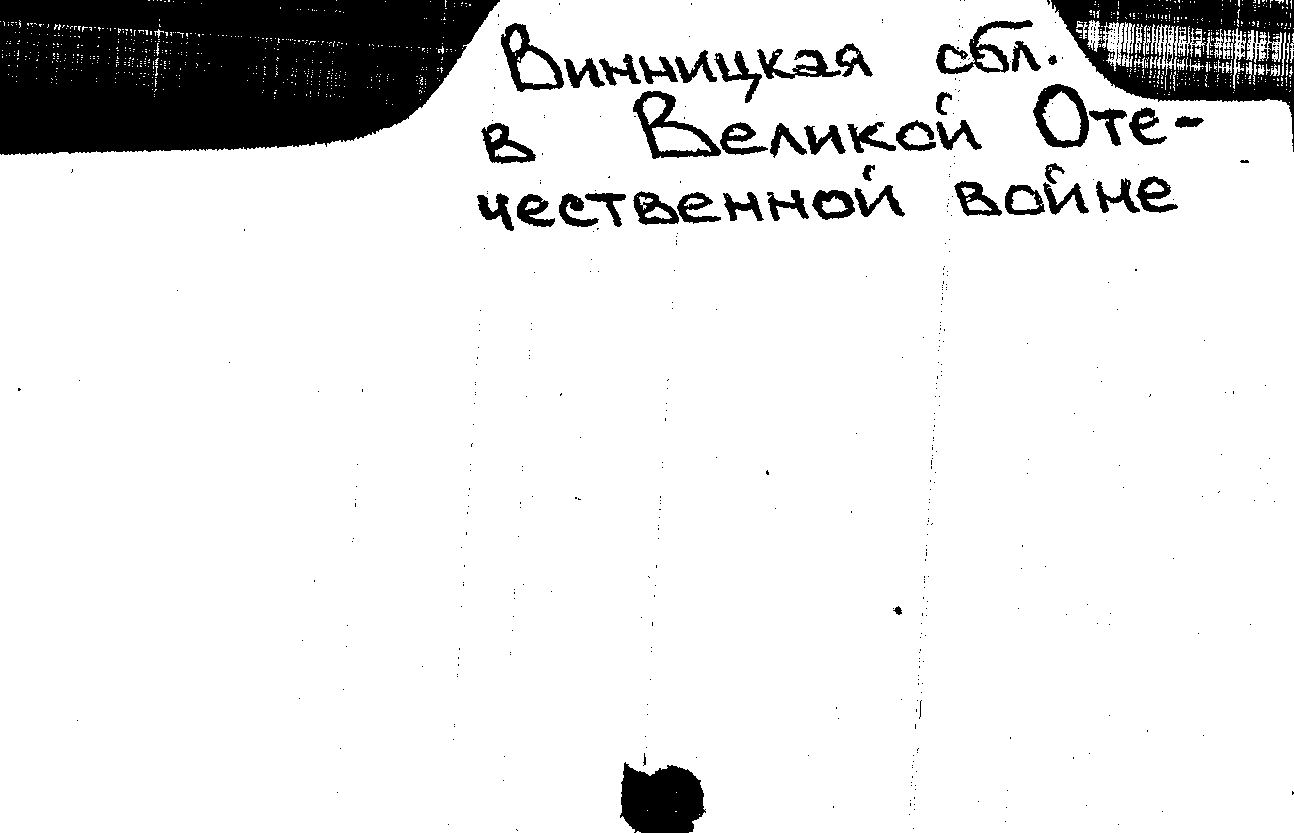 Винницкая обл.
в Великой Оте-
чественной войне